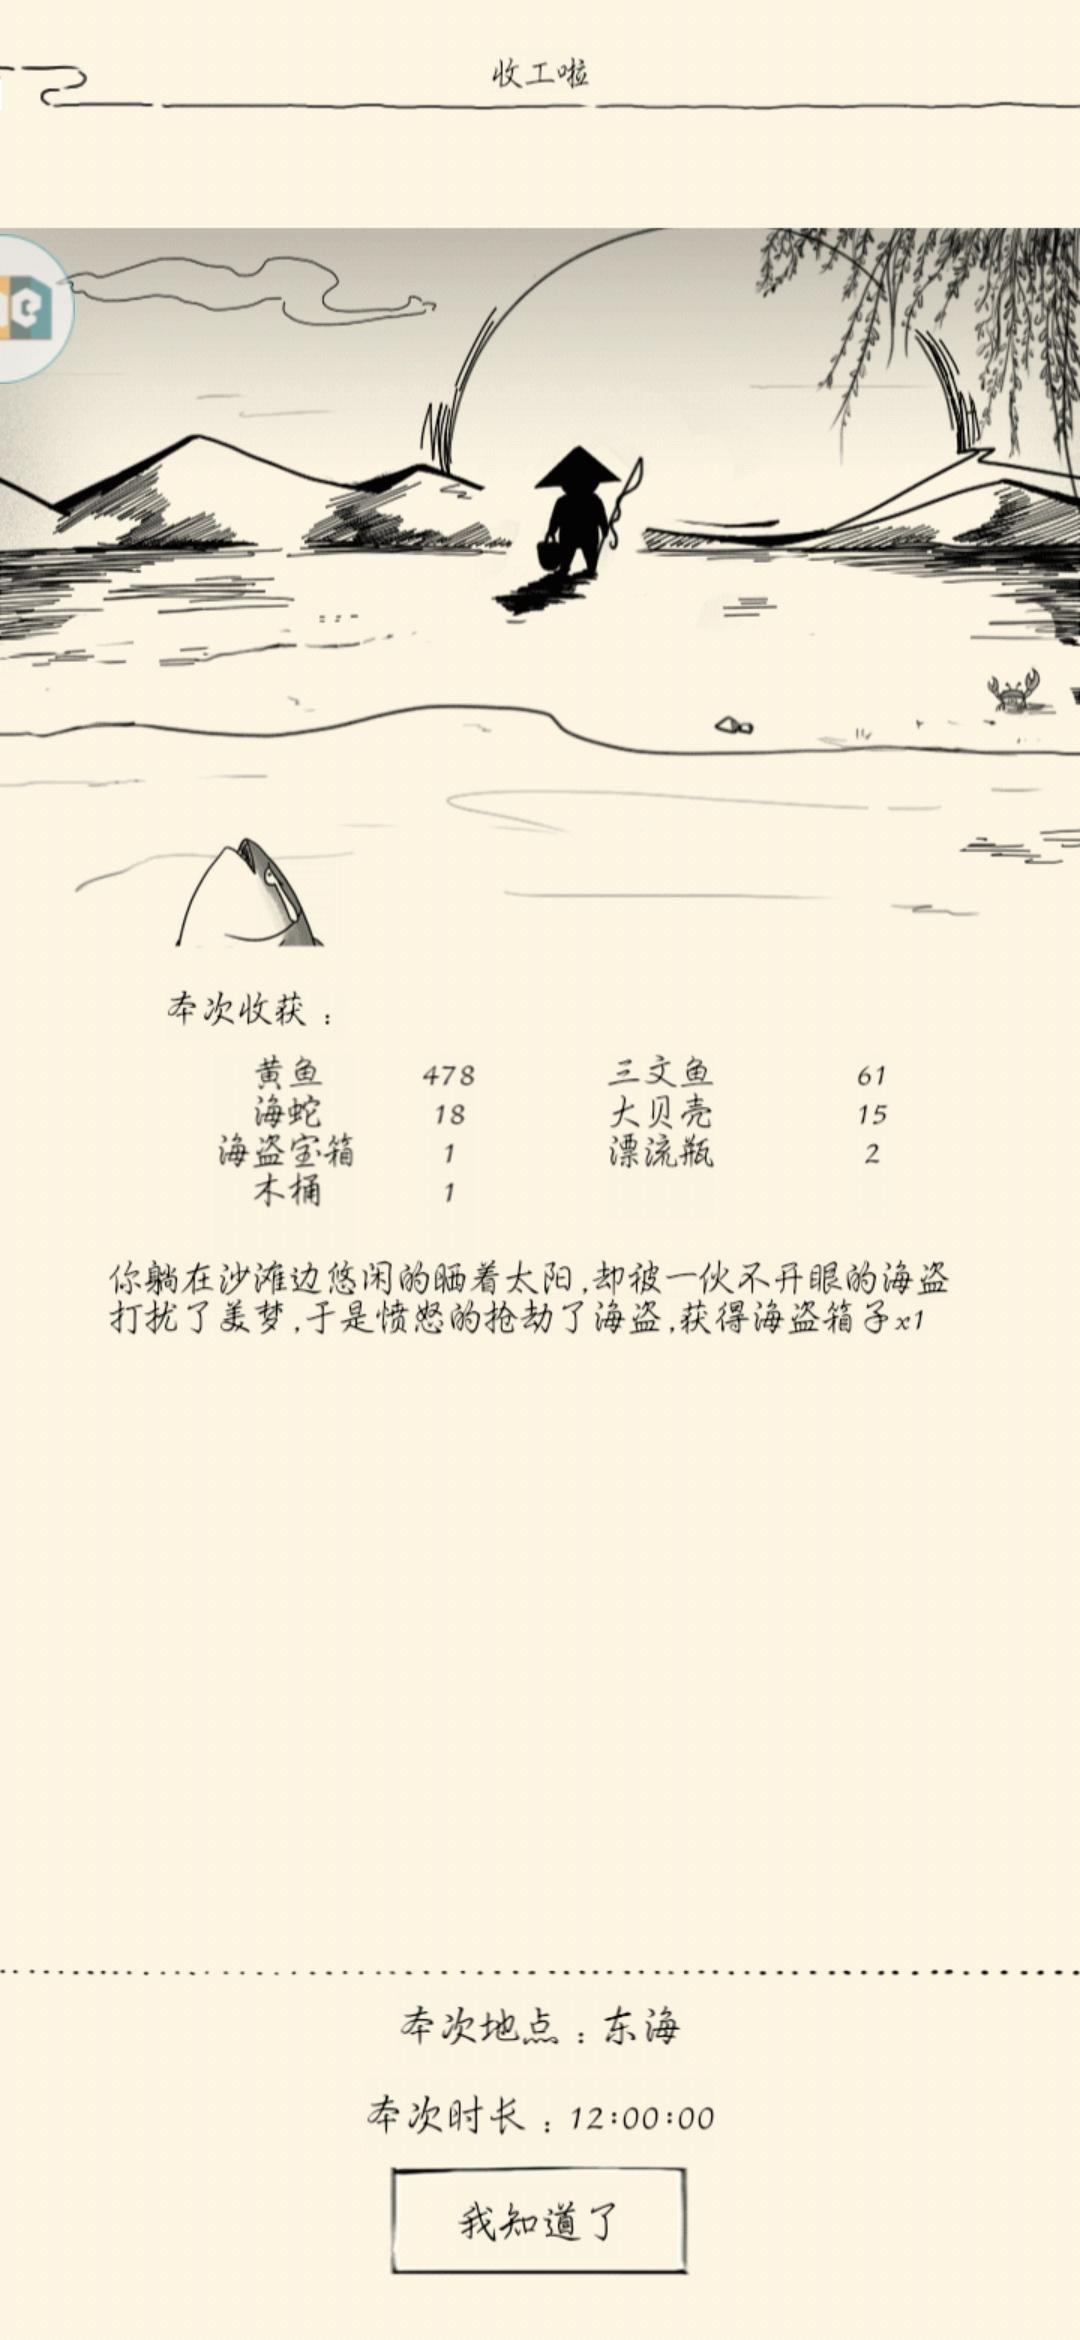 收工啦
本次收获：
黄鱼 478 三文鱼 61
海蛇 18 大贝壳 15
海盗宝箱 1 漂流瓶 2
木桶 1
你躺在沙滩边悠闲的晒着太阳,却被一伙不开眼的海盗
打扰了美梦,于是愤怒的抢劫了海盗,获得海盗箱子x1
本次地点：东海
本次时长：12:00:00
我知道了